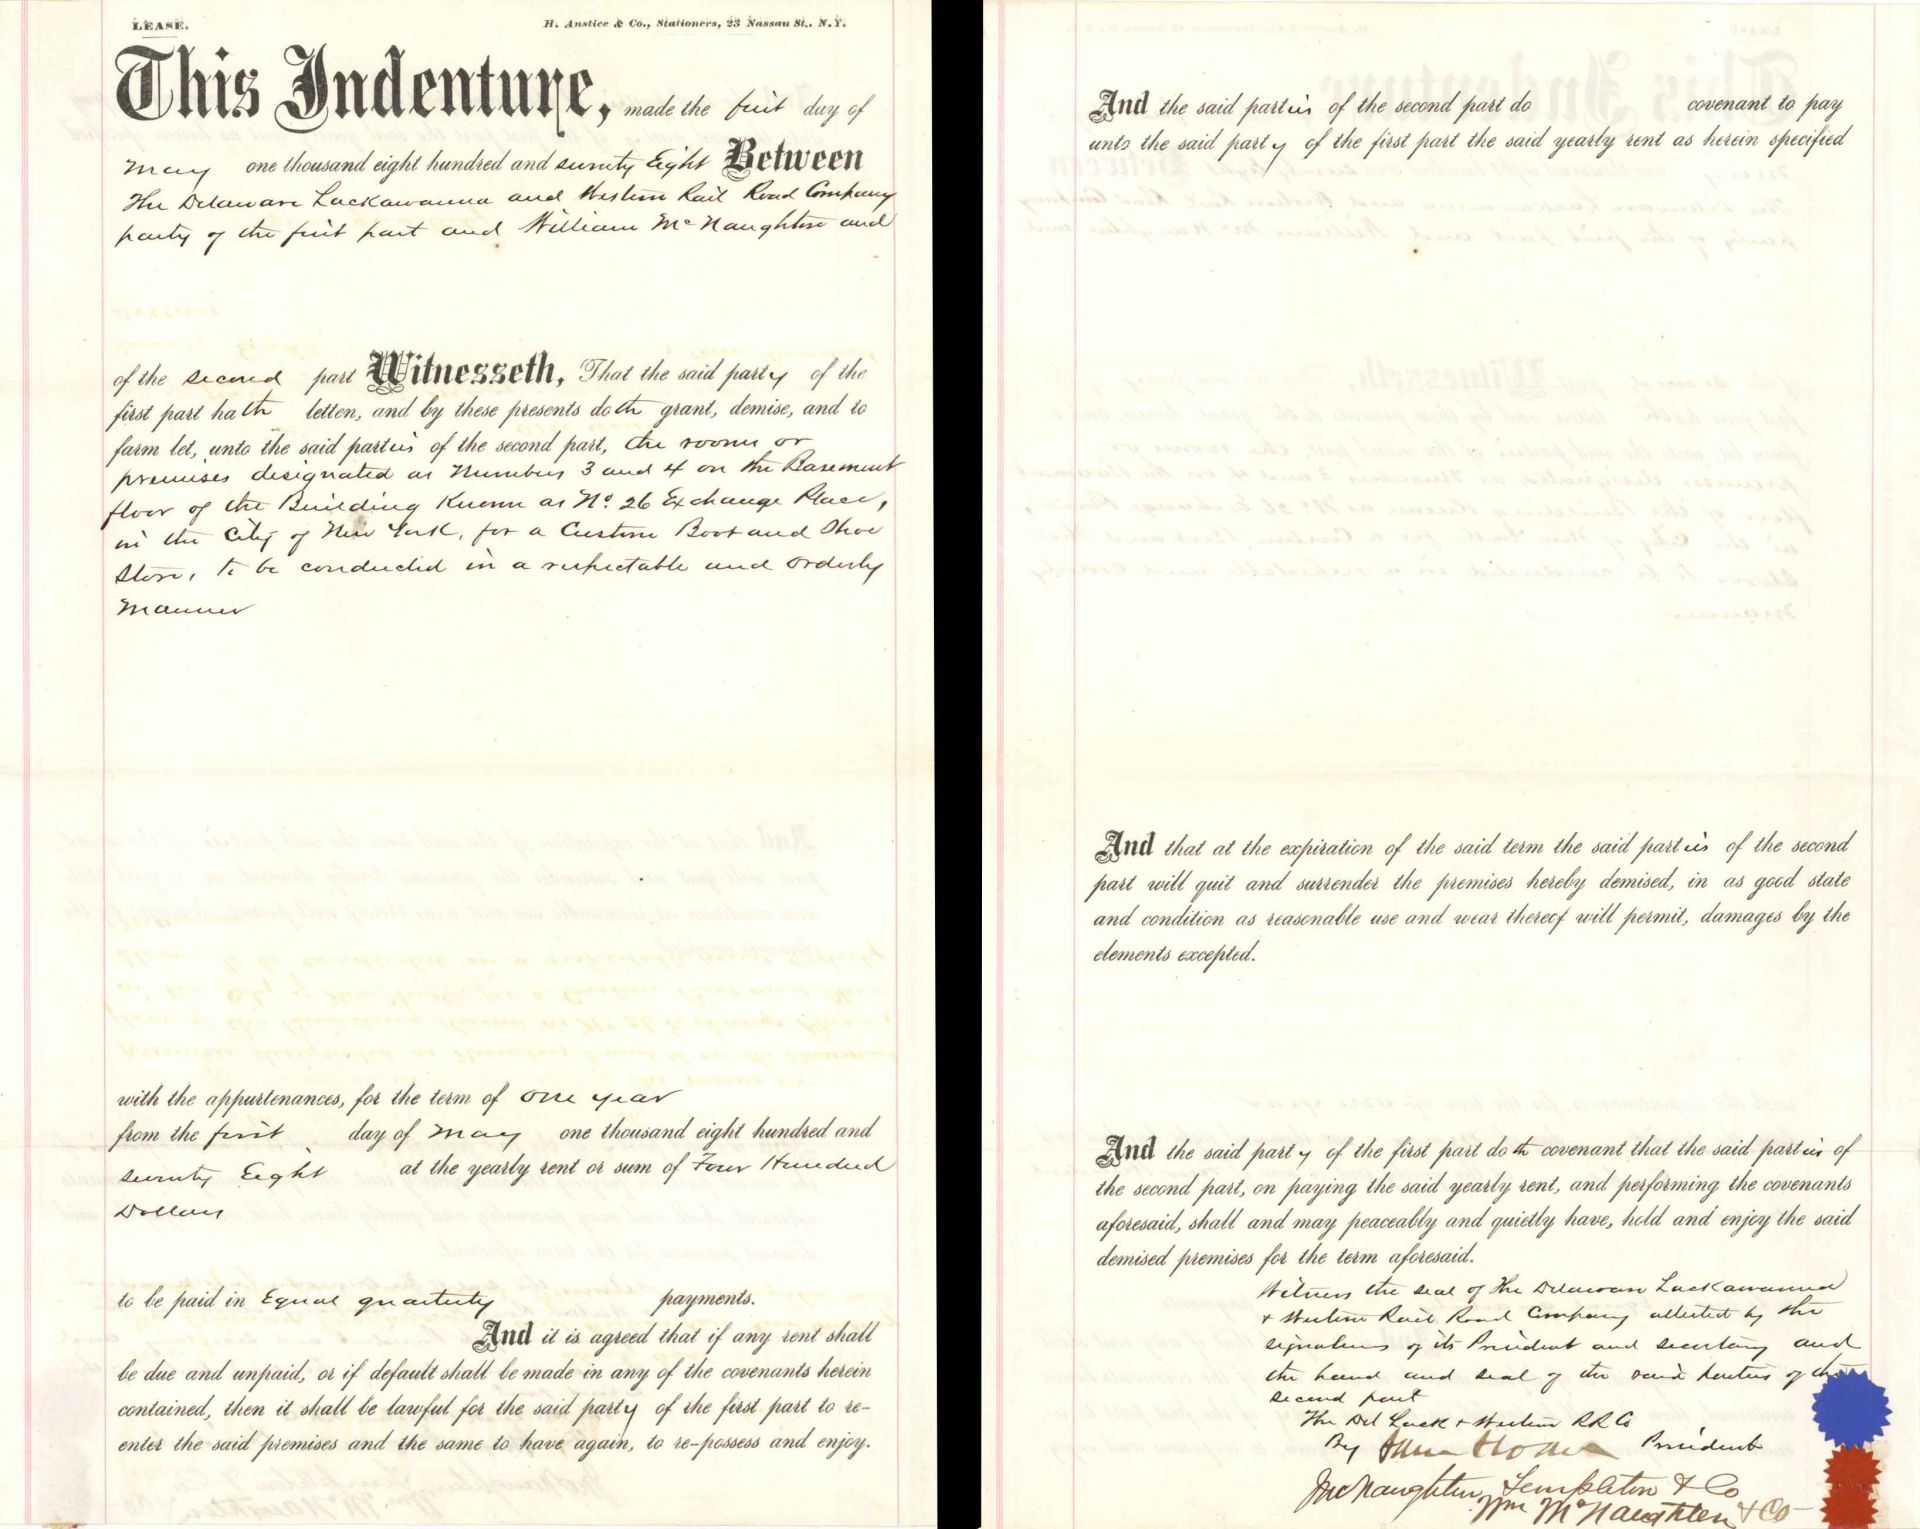 LEASE.
H. Anstice & Co., Stationers, 23 Nassau St., N.Y.
This Indenture, made the first day of
May one thousand eight hundred and seventy Eight Between
The Delaware Lackawanna and Western Rail Road Company
party of the first part and William McNaughton and
of the second part Witnesseth, That the said party of the
first part hath letten, and by these presents doth grant, demise, and to
farm let, unto the said parties of the second part, the rooms or
premises designated as Numbers 3 and 4 on the Basement
floor of the Building Known as No. 26 Exchange Place,
in the City of New York, for a Custom Boot and Shoe
Store, to be conducted in a respectable and orderly
Manner
with the appurtenances, for the term of one year
from the first day of May one thousand eight hundred and
seventy Eight at the yearly rent or sum of Four Hundred
Dollars
to be paid in Equal quarterly payments.
And it is agreed that if any rent shall
be due and unpaid, or if default shall be made in any of the covenants herein
contained, then it shall be lawful for the said party of the first part to re-
enter the said premises and the same to have again, to re-possess and enjoy.
And the said parties of the second part do covenant to pay
unto the said party of the first part the said yearly rent as herein specified
And that at the expiration of the said term the said parties of the second
part will quit and surrender the premises hereby demised, in as good state
and condition as reasonable use and wear thereof will permit, damages by the
elements excepted.
And the said party of the first part doth covenant that the said parties of
the second part, on paying the said yearly rent, and performing the covenants
aforesaid, shall and may peaceably and quietly have, hold and enjoy the said
demised premises for the term aforesaid.
Witness the seal of The Delaware Lackawanna
& Western Rail Road Company attested by the
signatures of its President and secretary and
the hand and seal of the said parties of the
second part
The Del Lack & Western RR Co
By President
McNaughton, Templeton & Co
Wm McNaughten & Co